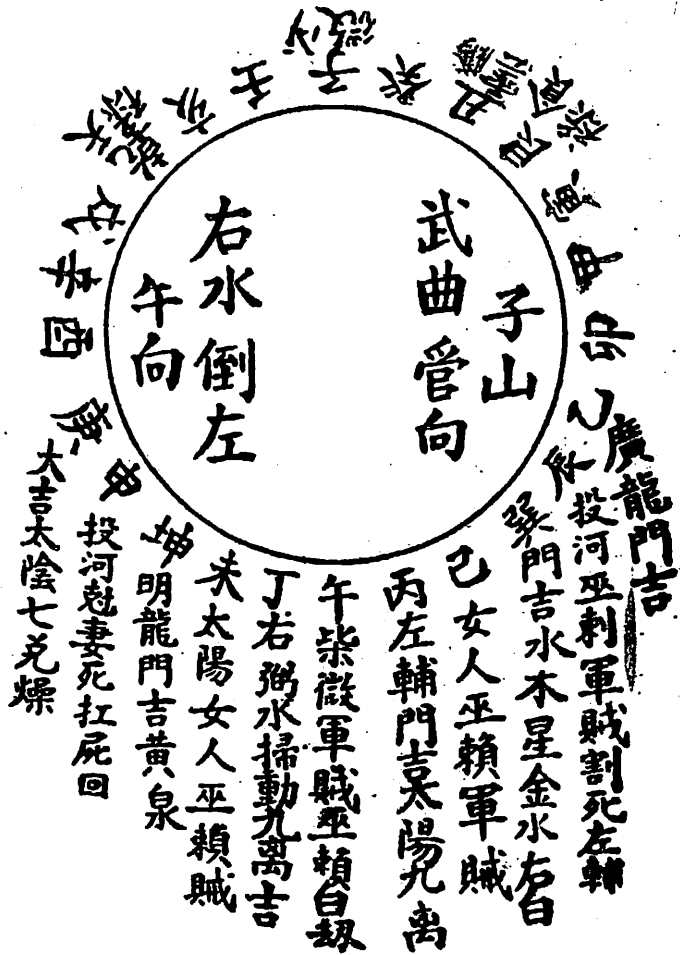 子山
武曲管向
右水倒左
午向
子
癸
丑
艮
寅
甲
卯
乙
廣龍門吉
辰
投河巫刺軍賊割死左輔
巽門吉水木星金水右白
巳女人巫賴軍賊
丙左輔門吉太陽九离
午柴微軍賊巫賴白刼
丁右弼水掃動九离吉
未太陽女人巫賴賊
坤
明龍門吉黃泉
申
投河尅妻死扛屍回
庚
大吉太陰七兌燥
酉
辛
戌
乾
亥
壬